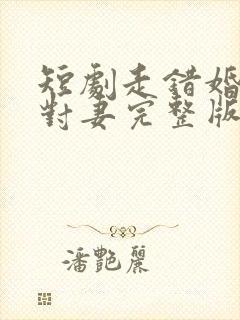 短劇走錯婚
對妻完整版
潘艷麗